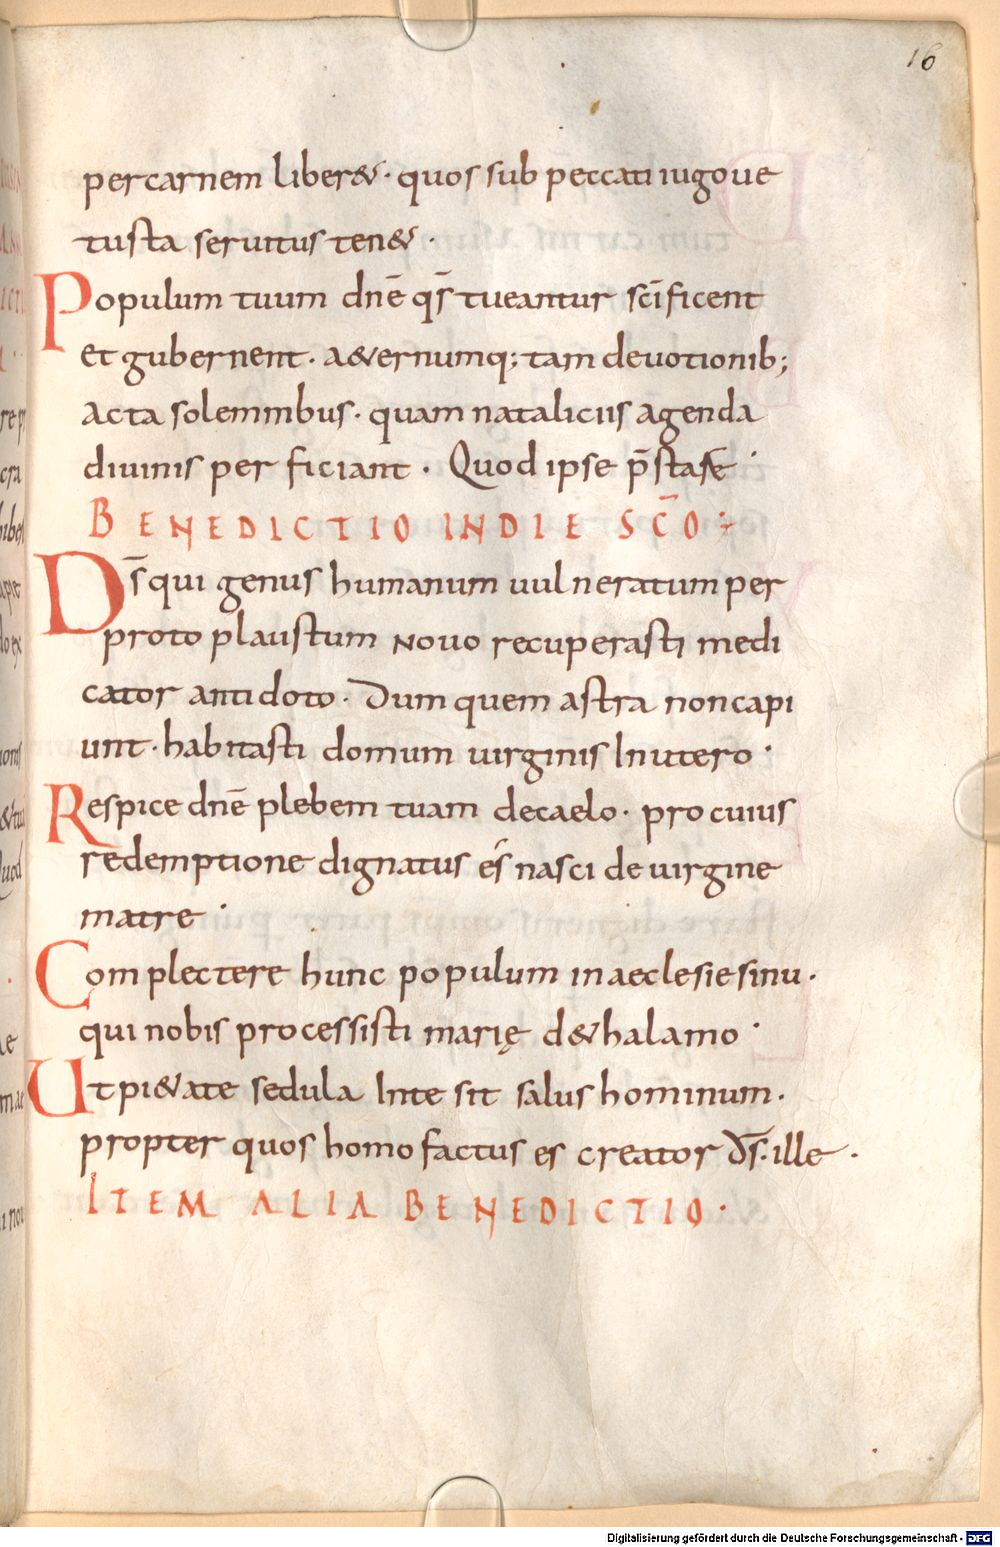 16
per carnem liber&. quos sub peccati iugo ue
tusta seruitus ten&.
Populum tuum dn̄e qs̄ tueantur sc̄ificent
et gubernent. a&ernumq; tam deuotionib;
acta solemnibus. quam nataliciis agenda
diuinis perficiant. Quod ipse p̄stare
BENEDICTIO IN DIE SC̄O
Ds̄ qui genus humanum uulneratum per
proto plaustum nouo recuperasti medi
cator antidoto. Dum quem astra non capi
unt. habitasti domum uirginis In utero.
Respice dn̄e plebem tuam de caelo. pro cuius
redemptione dignatus es nasci de uirgine
matre.
Complectere hunc populum in aeclesie sinu.
qui nobis processisti marię de thalamo.
Ut pi&ate sedula In te sit salus hominum.
propter quos homo factus es creator ds̄. ille.
ITEM ALIA BENEDICTIO.
Digitalisierung gefördert durch die Deutsche Forschungsgemeinschaft - DFG